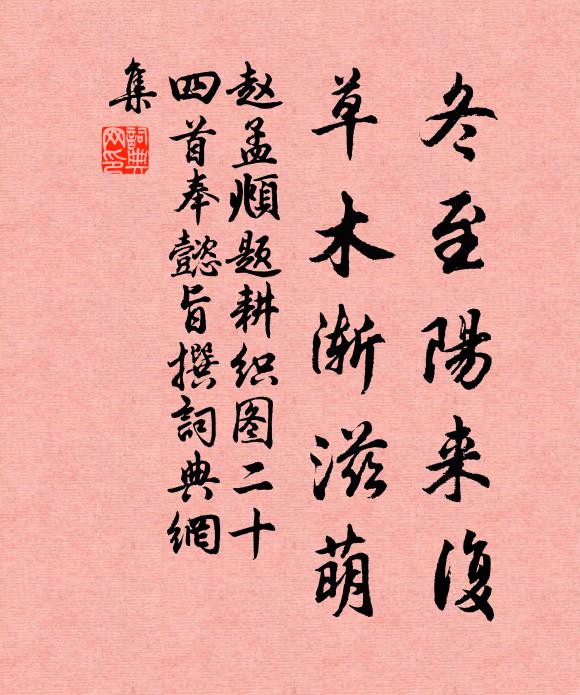 冬至陽来復
草木漸滋萌
赵孟頫题耕织图二十
四首奉懿旨撰詞典網
集
詞典网印